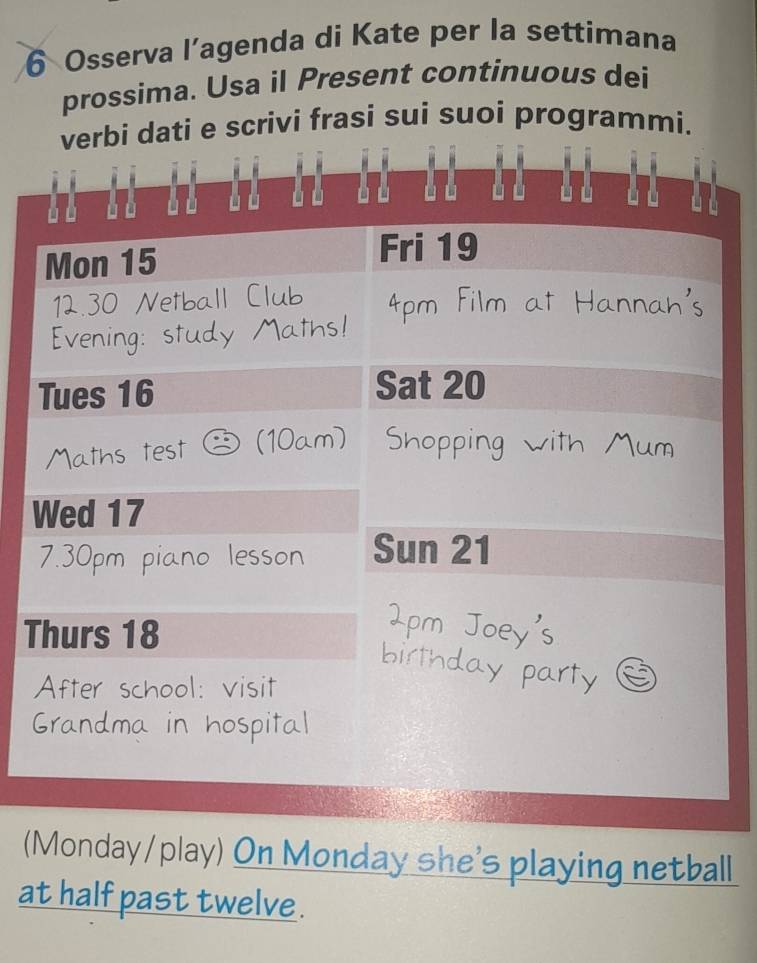 6 Osserva l'agenda di Kate per la settimana
prossima. Usa il Present continuous dei
verbi dati e scrivi frasi sui suoi programmi.
Mon 15
12.30 Netball Club
Evening: study Maths!
Tues 16
Maths test ☹ (10am)
Wed 17
7.30pm piano lesson
Thurs 18
After school: visit
Grandma in hospital
Fri 19
4pm Film at Hannah's
Sat 20
Shopping with Mum
Sun 21
2pm Joey's
birthday party ☺
(Monday/play) On Monday she's playing netball
at half past twelve.